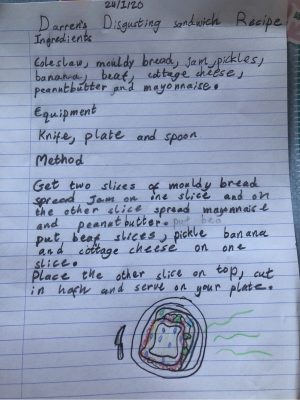 24/1/20
Darren's Disgusting sandwich Recipe
Ingredients
Coleslaw, mouldy bread, jam, pickles,
banana, beaf, cottage cheese,
peanutbutter and mayonnaise.
Equipment
Knife, plate and spoon
Method
Get two slices of mouldy bread
spread Jam on one slice and on
the other slice spread mayonnaise
and peanutbutter. put bea
put beaf slices, pickle banana
and cottage cheese on one
slice.
Place the other slice on top, cut
in hafh and serve on your plate.